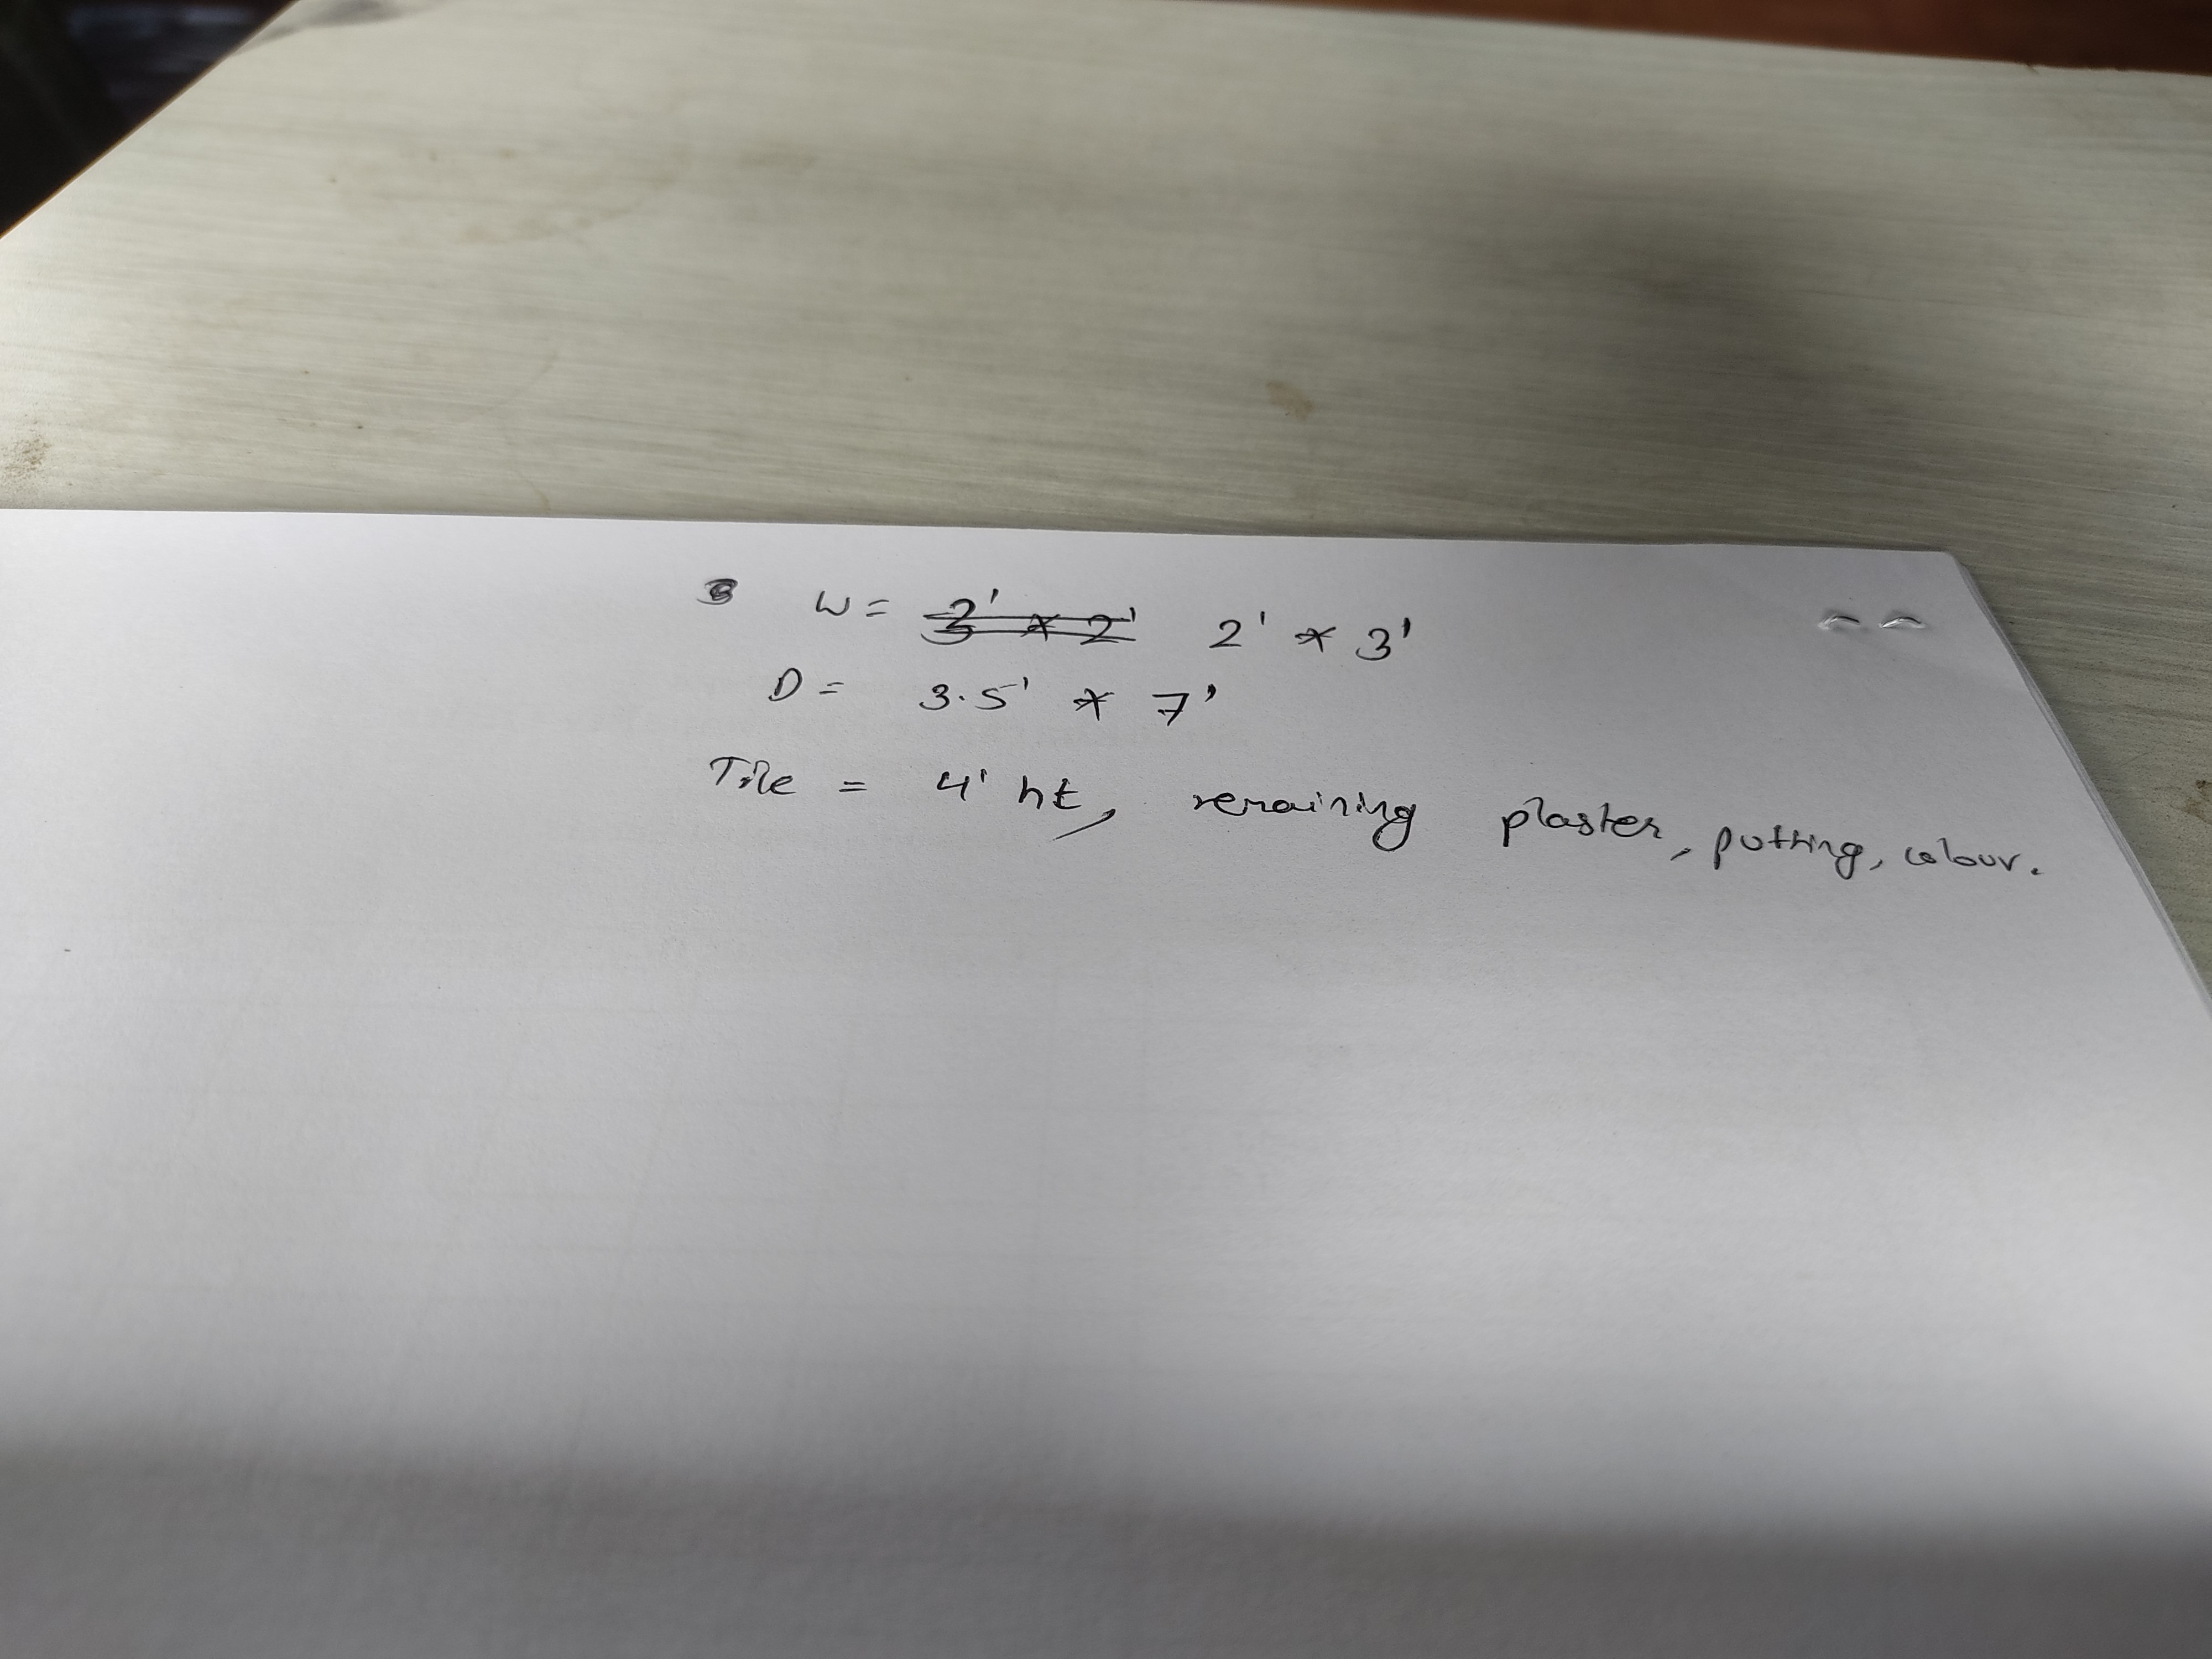 W = 3' * 2' 2' * 3'
D = 3.5' * 7'
Tile = 4' ht, remaining plaster, putting, colour.